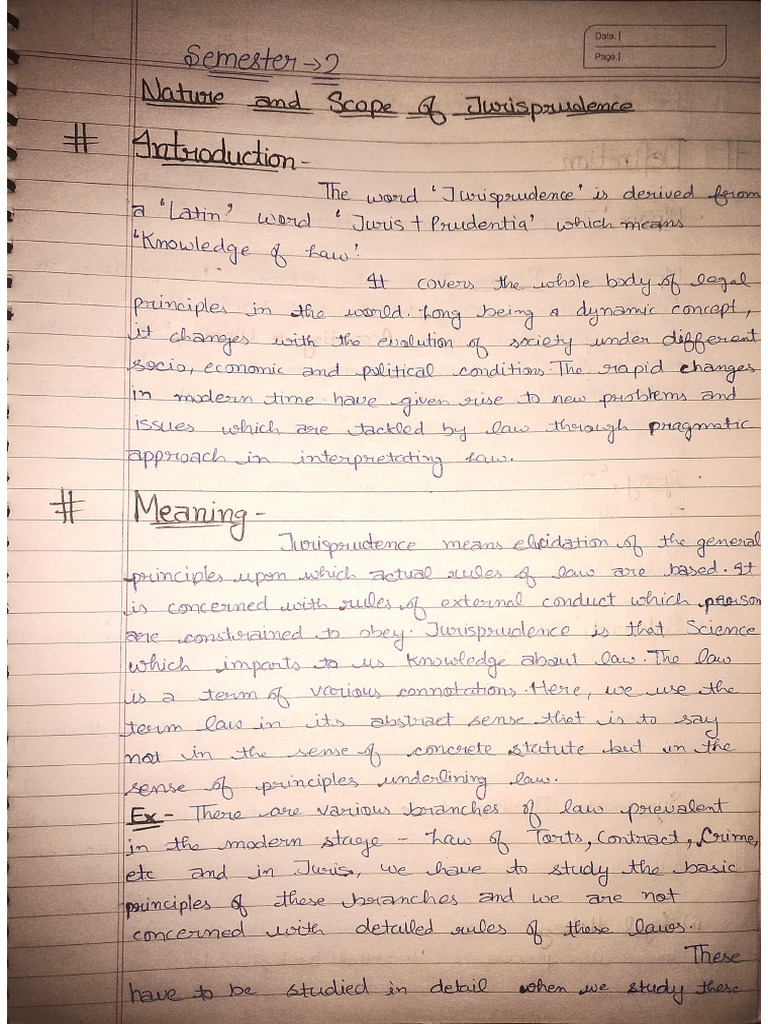 Date.|
Page.|
Semester → 2
Nature and Scope of Jurisprudence
# Introduction -
The word 'Jurisprudence' is derived from
a 'Latin' word 'Juris + Prudentia' which means
'Knowledge of Law'.
It covers the whole body of legal
principles in the world. Long being a dynamic concept,
it changes with the evolution of society under different
socio, economic and political conditions. The rapid changes
in modern time have given rise to new problems and
issues which are tackled by law through pragmatic
approach in interpretating law.
# Meaning -
Jurisprudence means elucidation of the general
principles upon which actual rules of law are based. It
is concerned with rules of external conduct which person
are constrained to obey. Jurisprudence is that Science
which imparts to us knowledge about law. The law
is a term of various connotations. Here, we use the
term law in its abstract sense that is to say
not in the sense of concrete statute but in the
sense of principles underlining law.
Ex - There are various branches of law prevalent
in the modern stage - Law of Torts, Contract, Crime,
etc and in Juris, we have to study the basic
principles of these branches and we are not
concerned with detailed rules of those laws.
These
have to be studied in detail when we study these